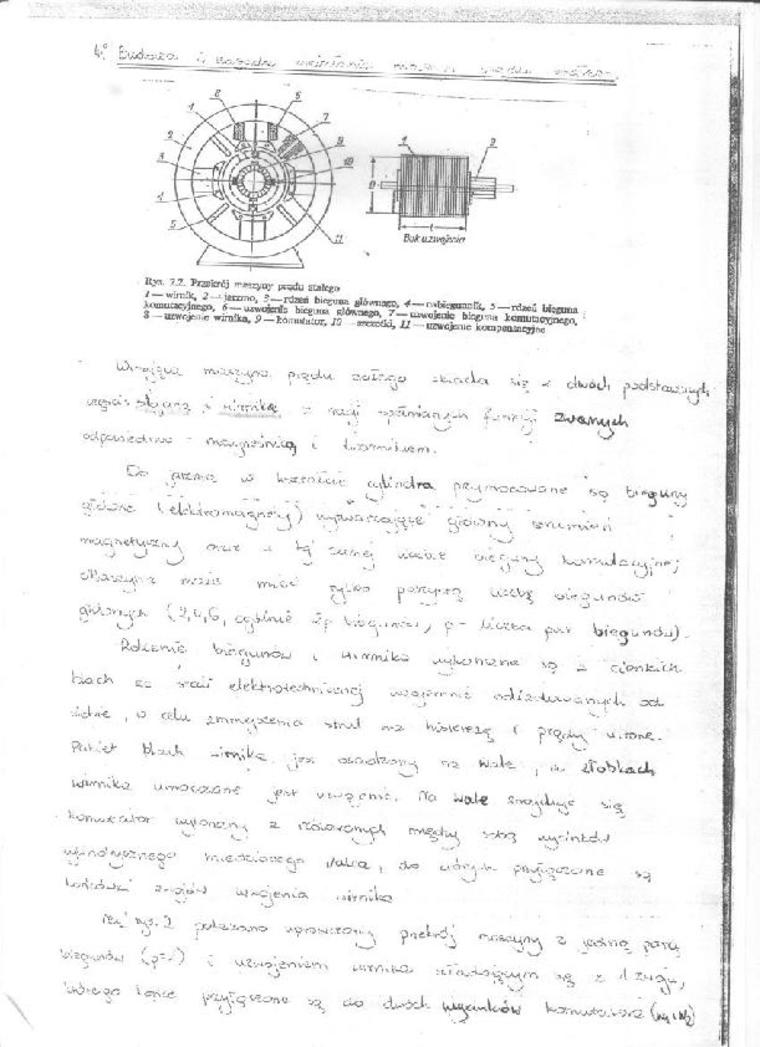 4° Budowa i zasada działania maszyn prądu stałego.
8 6
1 7
2 9
3 10
4
5 11
1 9
D
l
Bok uzwojenia
Rys. 7.7. Przekrój maszyny prądu stałego
1 — wirnik, 2 — jarzmo, 3 — rdzeń bieguna głównego, 4 — nabiegunnik, 5 — rdzeń bieguna
komutacyjnego, 6 — uzwojenie bieguna głównego, 7 — uzwojenie bieguna komutacyjnego,
8 — uzwojenie wirnika, 9 — komutator, 10 — szczotki, 11 — uzwojenie kompensacyjne
Wirująca maszyna prądu stałego składa się z dwóch podstawowych
części stojana i wirnika z racji spełnianych funkcji zwanych
odpowiednio - magneśnicą i twornikiem.
Do jarzma w kształcie cylindra przymocowane są bieguny
główne (elektromagnesy) wytwarzające główny strumień
magnetyczny oraz w tej samej liczbie bieguny komutacyjne;
Maszyna może mieć tylko parzystą liczbę biegunów
głównych (2,4,6, ogólnie 2p biegunów, p - liczba par biegunów).
Rdzenie biegunów i wirnika wykonane są z cienkich
blach ze stali elektrotechnicznej wzajemnie odizolowanych od
siebie, w celu zmniejszenia strat na histerezę i prądy wirowe.
Pakiet blach wirnika jest osadzony na wale, w żłobkach
wirnika umocowane jest uzwojenie. Na wale znajduje się
komutator wykonany z izolowanych między sobą wycinków
cylindrycznego miedzianego walca, do których przyłączone są
końcówki zwojów uzwojenia wirnika
Na rys. 2 pokazano uproszczony przekrój maszyny z jedną parą
biegunów (p=1) i uzwojeniem wirnika składającym się z 1 zwoju,
którego końce przyłączone są do dwóch wycinków komutatora